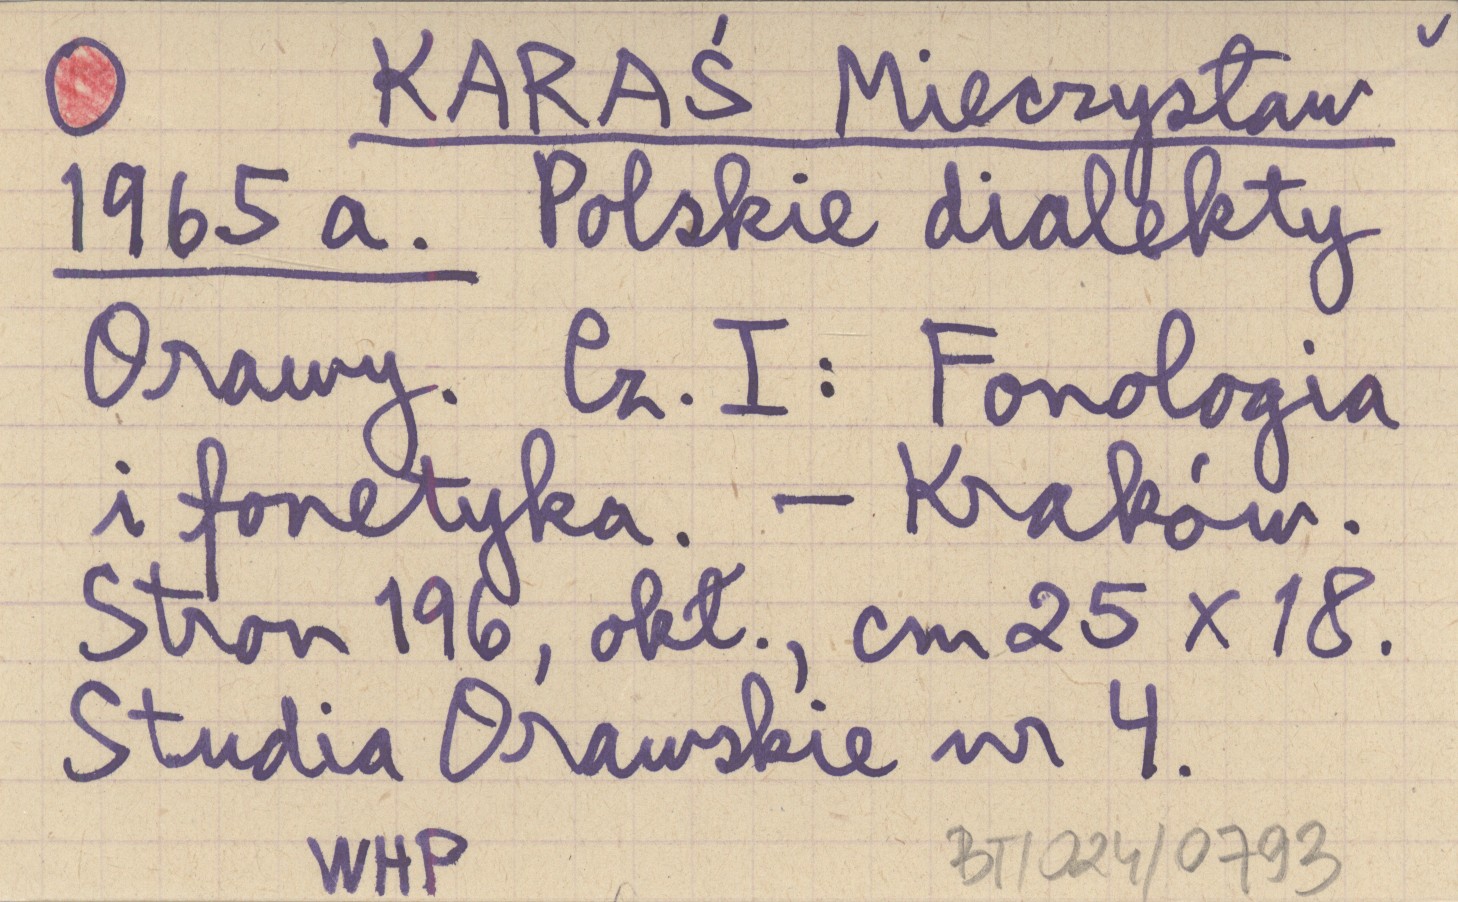 KARAŚ Mieczysław
1965 a. Polskie dialekty
Orawy. Cz. I : Fonologia
i fonetyka. — Kraków.
Stron 196, okł., cm 25 x 18.
Studia Orawskie nr 4.
WHP BT/024/0793